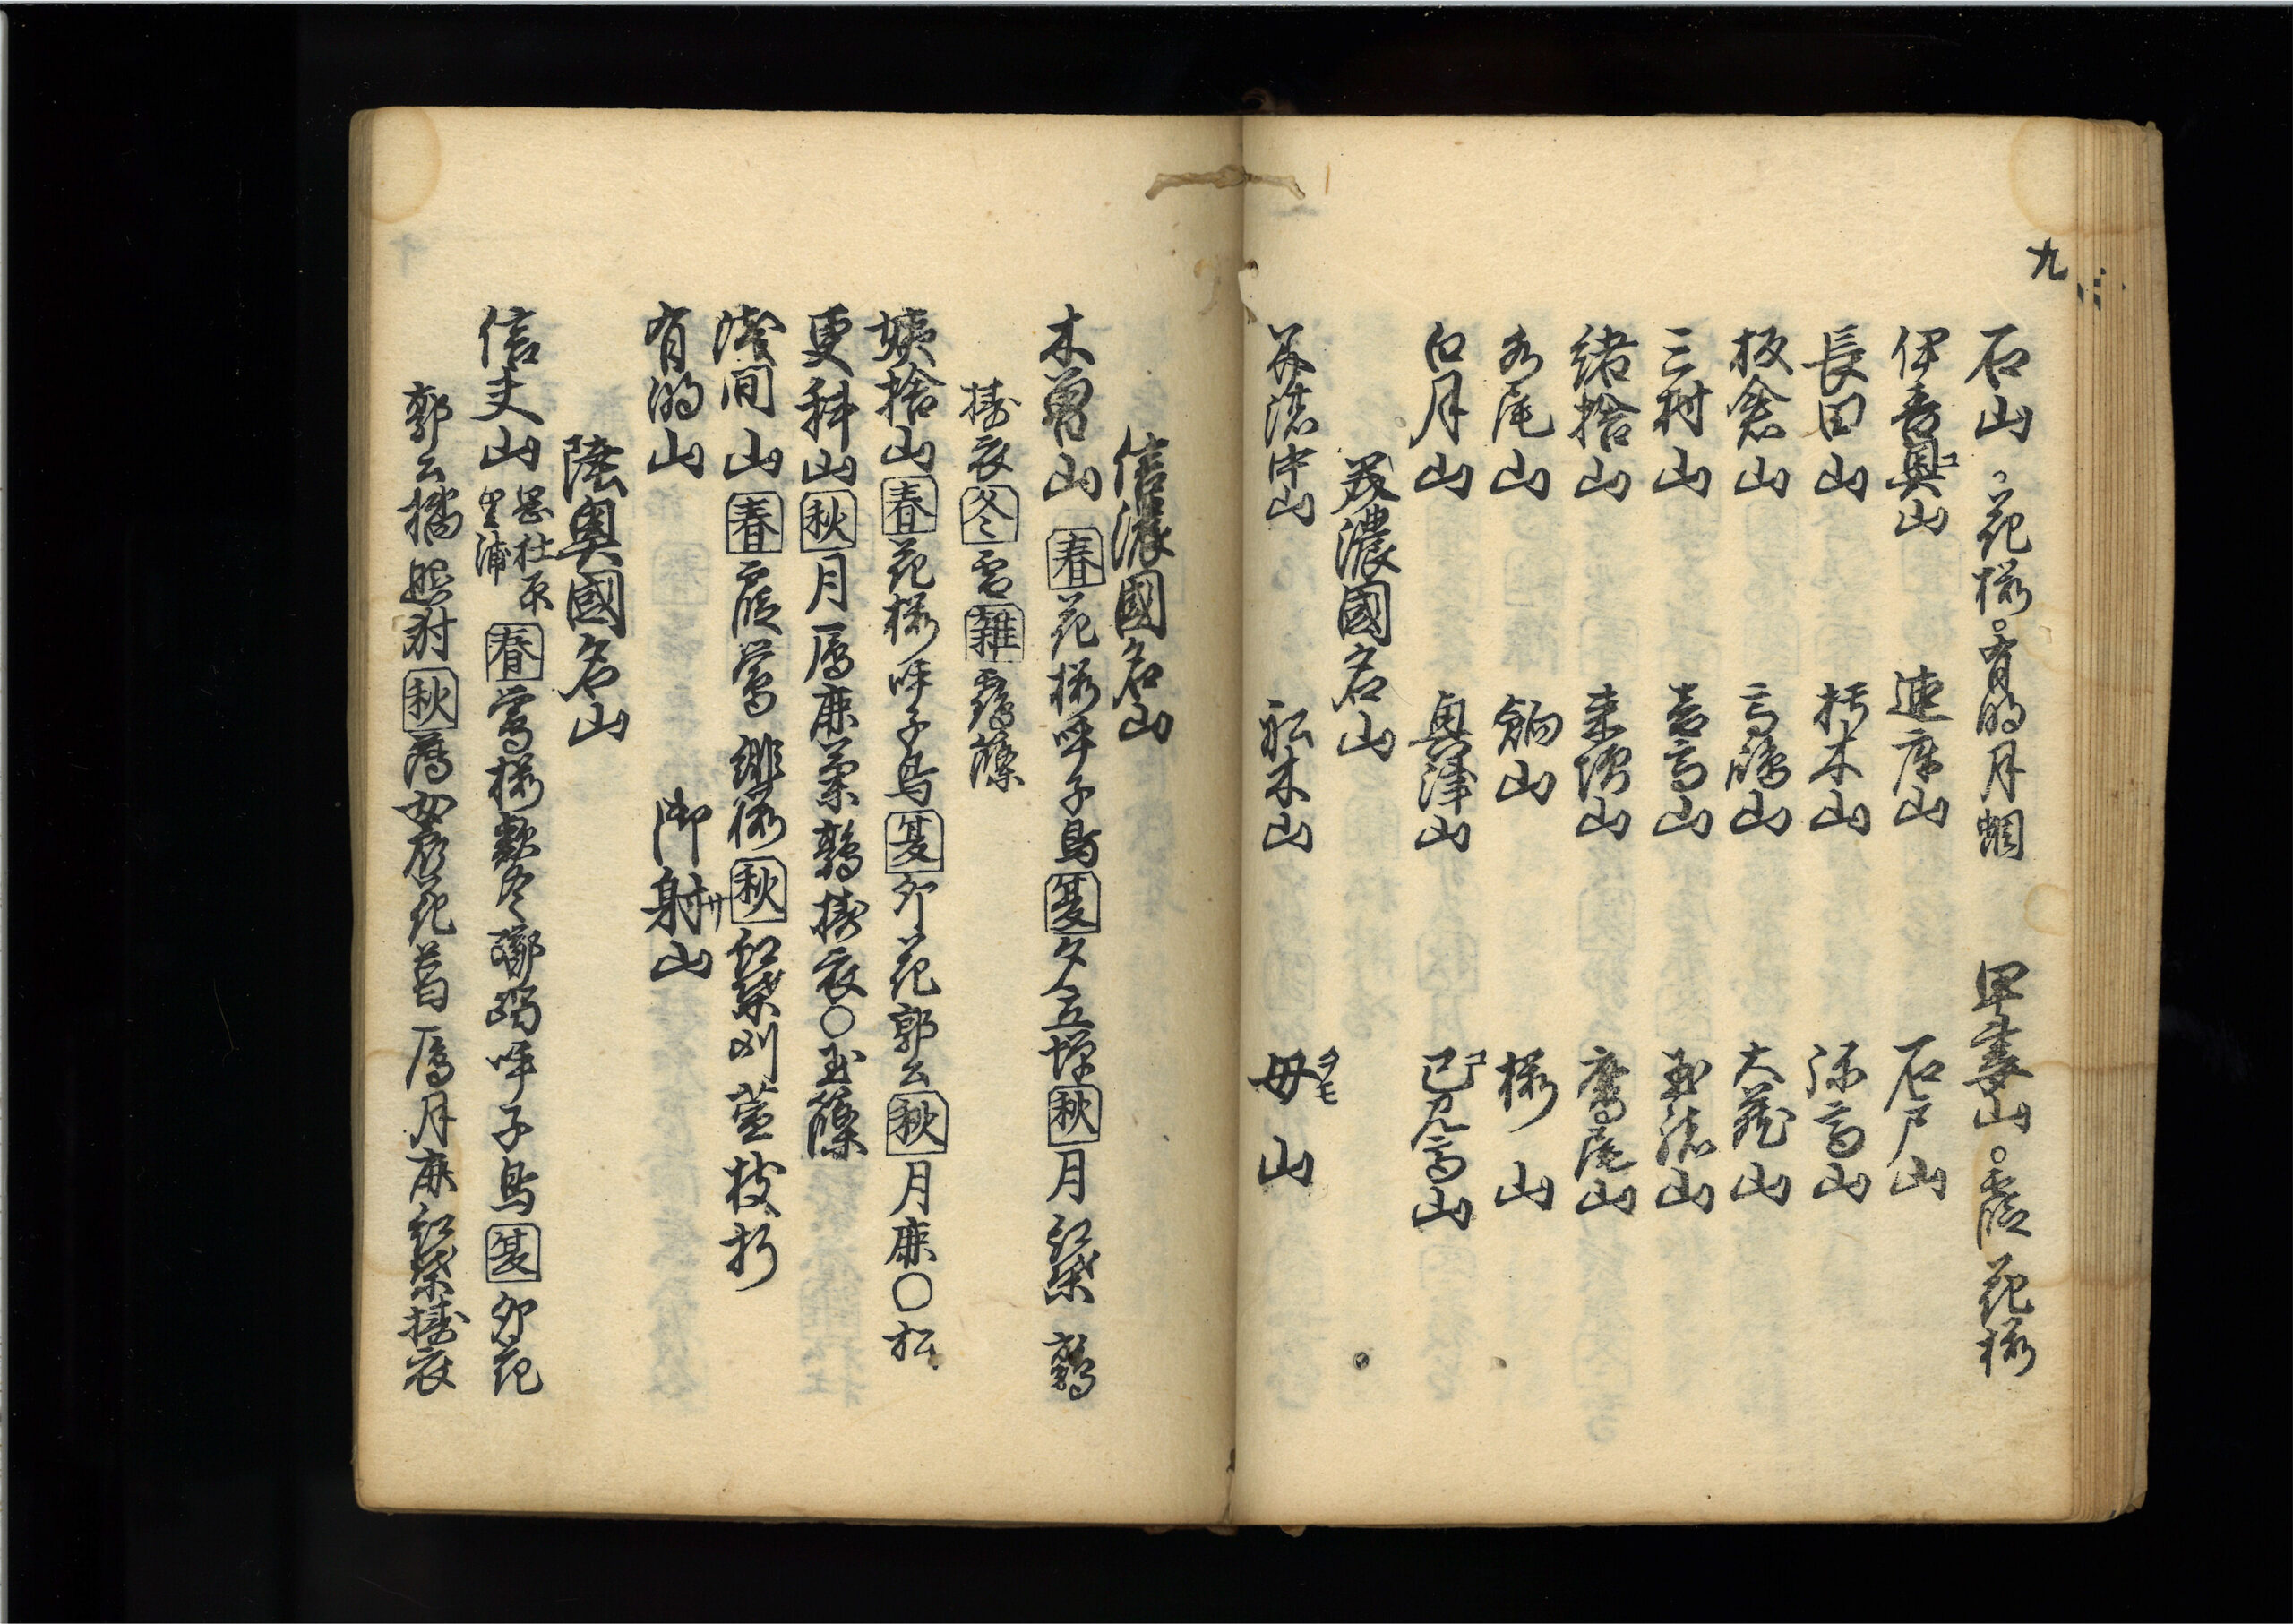 九
石山 花桜 有明月 蜩 甲妻山 霞 花桜
伊香奥山 連庫山 石戸山
コ
長田山 朽木山 弥高山
板倉山 高嶋山 大蔵山
三村山 吉高山 玉緒山
緒捨山 来増山 鷹尾山
水尾山 鏡山 桜山
白月山 奥津山 已高山
コ
美濃國名山
美濃中山 船木山 母山
タモ
信濃國名山
木曽山 春 花桜呼子鳥 夏 夕立蝉 秋 月紅葉 鶉
擣衣 冬 雪 雑 霧篠
姨捨山 春 花桜呼子鳥 夏 卯花郭公 秋 月鹿○松
更科山 秋 月鴈鹿菊鶉擣衣○玉篠
浅间山 春 霞鶯 秋 紅葉刈萱 枝折
有明山 御射山
サ
陸奥國名山
信夫山 岡杜原
里浦 春 鶯桜款冬躑躅呼子鳥 夏 卯花
郭公橘照射 秋 薄女郎花萱鴈月鹿紅葉擣衣